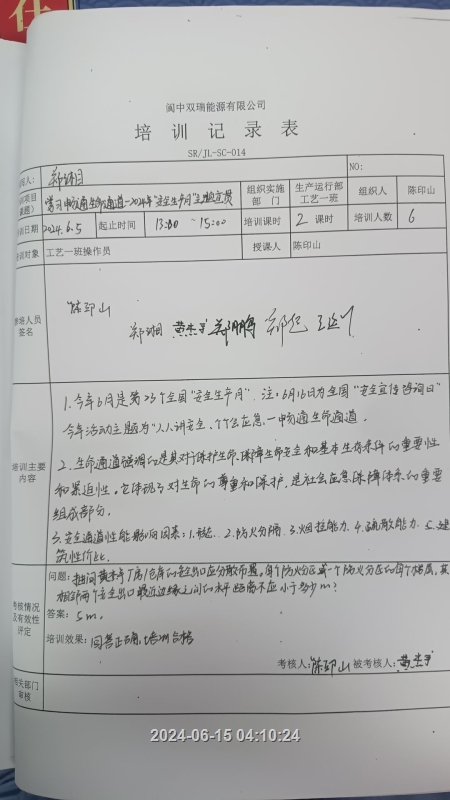 阆中双瑞能源有限公司
培训记录表
SR/JL-SC-014
郑湘 NO:
学习畅通生命通道-2024年"安全生产月"主题宣贯 组织实施部门 生产运行部工艺一班 组织人 陈印山
培训日期 2024.6.5 起止时间 13:00~15:00 培训课时 2课时 培训人数 6
培训对象 工艺一班操作员 授课人 陈印山
参培人员签名
陈印山
郑湘
培训主要内容
1.今年6月是第23个全国"安全生产月". 注:6月16日为全国"安全宣传咨询日"
今年活动主题为"人人讲安全、个个会应急—畅通生命通道.
2.生命通道强调的是其对于保护生命、保障生命安全和基本生存条件的重要性
和紧迫性。它体现了对生命的尊重和保护,是社会应急保障体系的重要
组成部分.
3.安全通道性能影响因素:1. 2.防火分隔. 3.烟控能力. 4.疏散能力. 5.建
筑性价比.
考核情况及有效性评定
问题:抽问黄 厂房/仓库的安全出口应分散布置。每个防火分区或一个防火分区的每个楼层,其
相邻两个安全出口最近边缘之间的水平距离不应小于多少m?
答案: 5m.
培训效果:回答正确,培训合格
考核人:陈印山 被考核人:黄
相关部门审核
2024-06-15 04:10:24